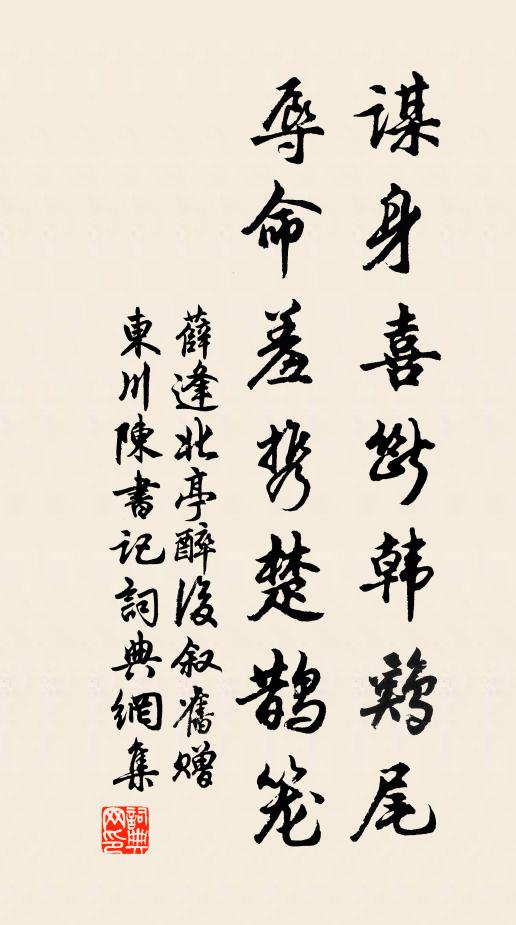 谋身喜断韩鸡尾
辱命羞携楚鹊笼
薛逢北亭醉後叙舊赠
東川陳書记詞典網集
詞典
网印